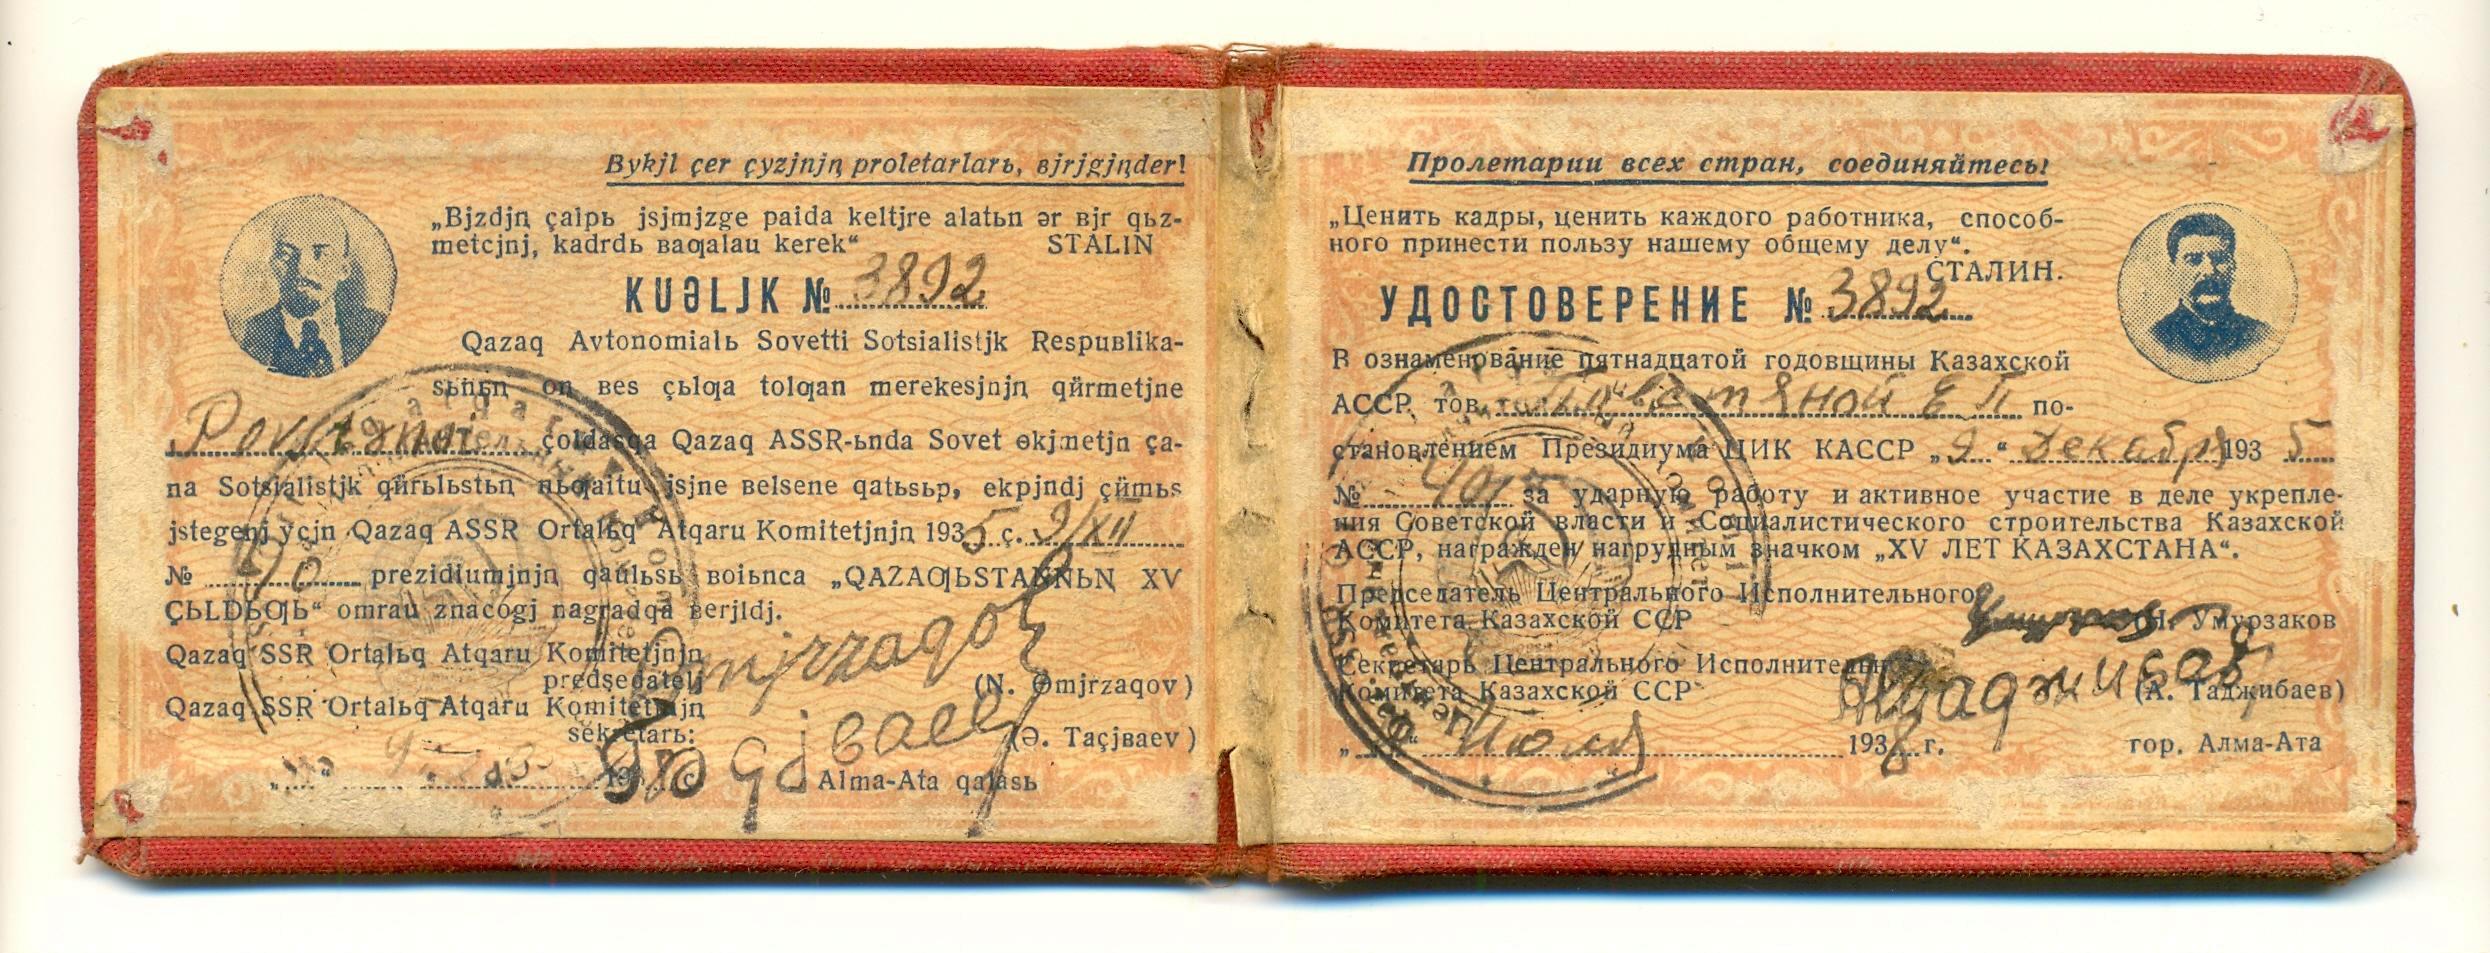 Bykjl çer çyzjnjꞑ proletarlarь, ʙjrjgjꞑder!
„Bjzdjꞑ çalpь jsjmjzge paida keltjre alatьn ər ʙjr qьz-
metcjnj, kadrdь ʙaƣalau kerek“ STALIN
KUƏLJK № 3892
Qazaq Avtonomialь Sovetti Sotsialistjk Respuʙlika-
sьnьꞑ on ʙes çьlƣa tolƣan merekesjnjꞑ qürmetjne
çoldasqa Qazaq ASSR-ьnda Sovet ɵkjmetjn ça-
na Sotsjalistjk qürьlьstьꞑ nьƣaitu jsjne ʙelsene qatьsьp, ekpjndj çümьs
jstegenj ycjn Qazaq ASSR Ortalьq Atqaru Komitetjnjꞑ 1935 ç. 9/XII
№ prezidiumjnjꞑ qaulьsь ʙoiьnca „QAZAƢЬSTANNЬꞐ XV
ÇЬLDЬƢЬ“ omrau znacogj nagradƣa ʙerjldj.
Qazaq SSR Ortalьq Atqaru Komitetjnjꞑ
predsedatelj Ømjrzaqov (N. Ømjrzaqov)
Qazaq SSR Ortalьq Atqaru Komitetjnjꞑ
sekretarь: Taçjʙaev (Ə. Taçjʙaev)
193 ç. Alma-Ata qalasь
Пролетарии всех стран, соединяйтесь!
„Ценить кадры, ценить каждого работника, способ-
ного принести пользу нашему общему делу“.
СТАЛИН.
УДОСТОВЕРЕНИЕ № 3892
В ознаменование пятнадцатой годовщины Казахской
АССР, тов. Повстяной Е П по-
становлением Президиума ЦИК КАССР „9“ Декабря 1935
№ за ударную работу и активное участие в деле укрепле-
ния Советской власти и Социалистического строительства Казахской
АССР, награжден нагрудным значком „XV ЛЕТ КАЗАХСТАНА“.
Председатель Центрального Исполнительного
Комитета Казахской ССР (Н. Умурзаков
Секретарь Центрального Исполнительн
Комитета Казахской ССР Таджибаев (А. Таджибаев)
Июля 1938 г. гор. Алма-Ата